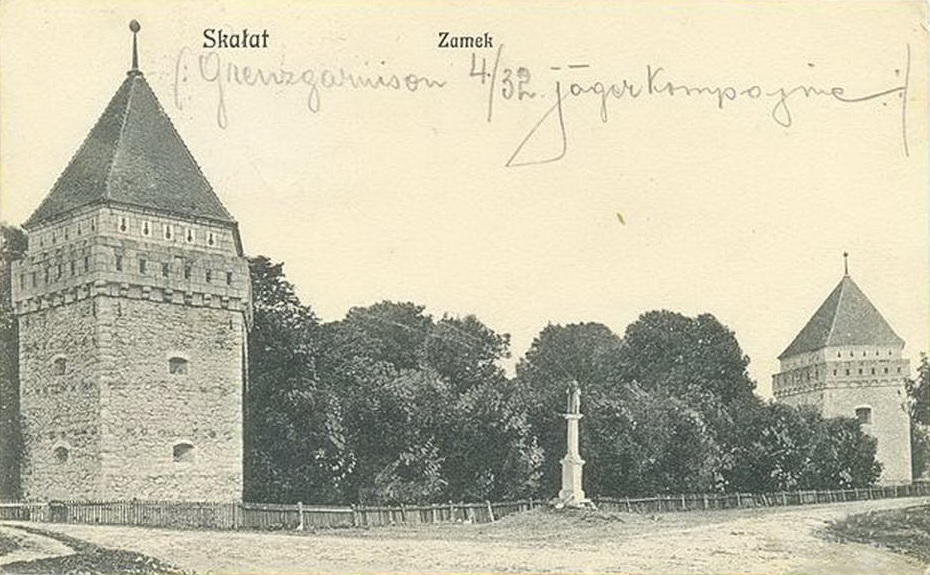 Skałat Zamek
(: Grenzgarnison 4/32 Jägerkompajnie :)